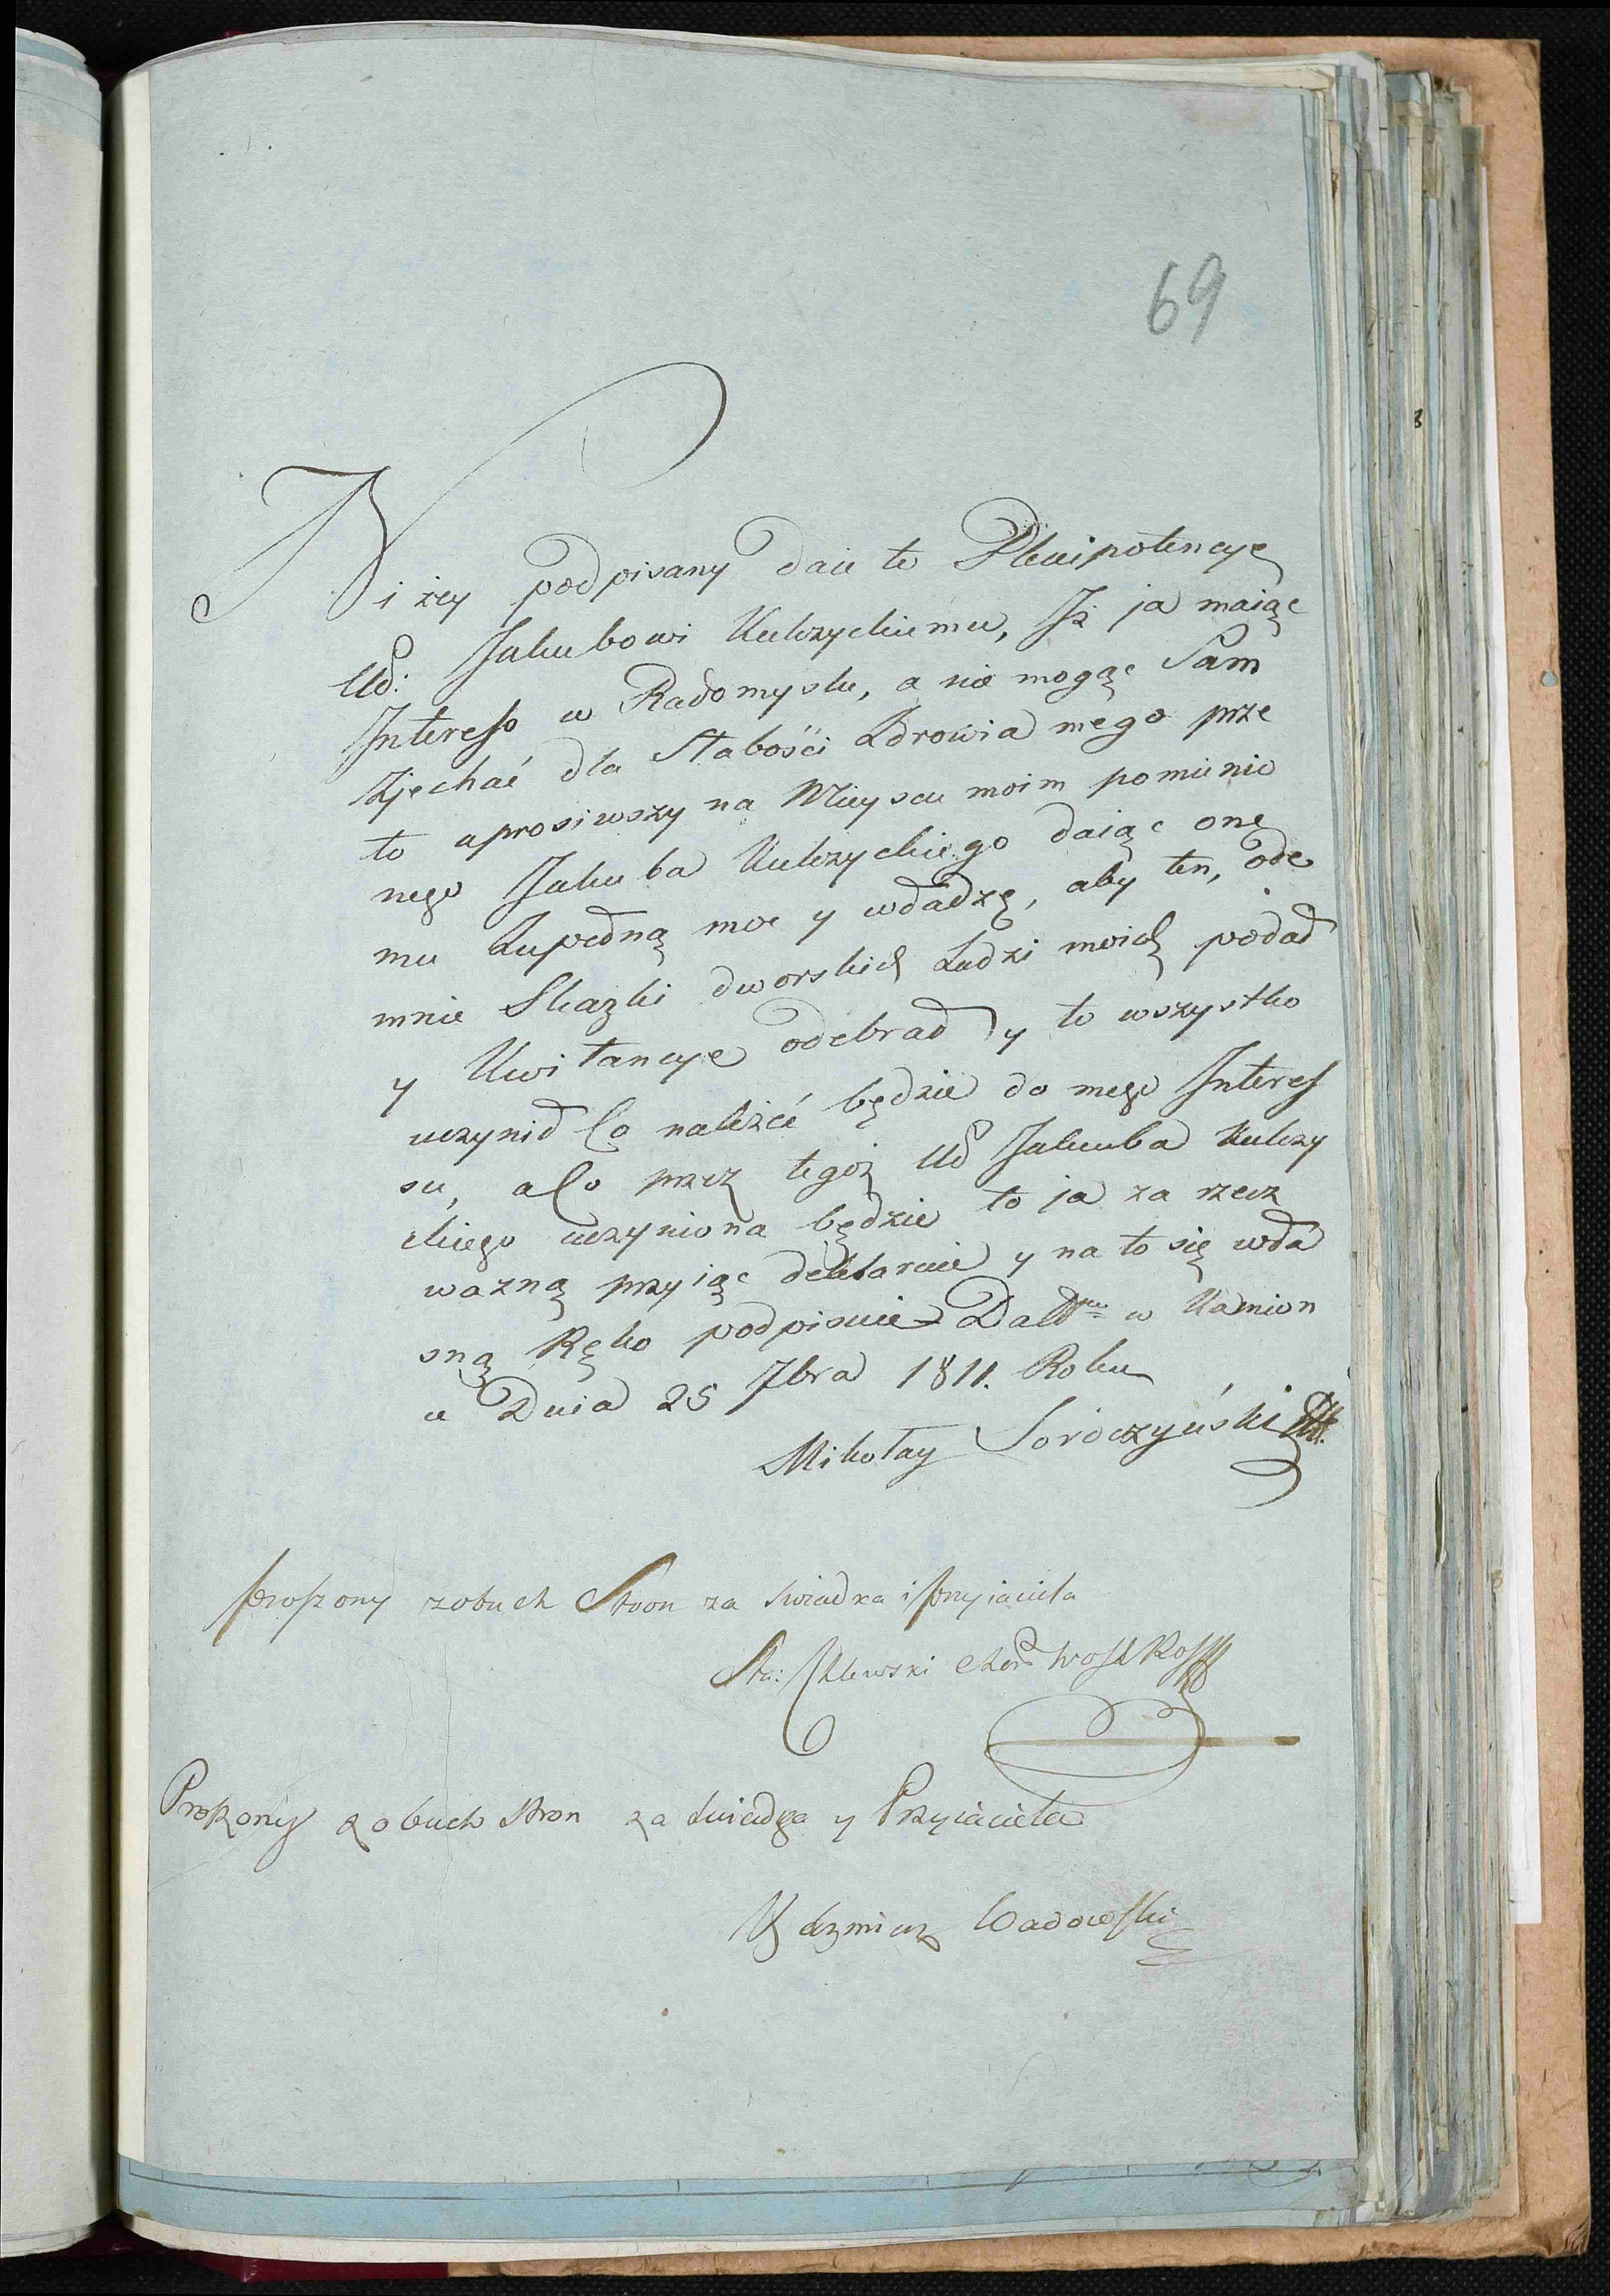 69
Niżey podpisany daie te Plenipotencyę
Ur: Jakubowi Kulczyckiemu, Iż ja maiąc
Interesso w Radomyslu, a nie mogąc Sam
Zjechać dla Słabości Zdrowia mego prze
to uprosiwszy na Mieyscu moim pomienio
nego Jakuba Kulczyckiego daiąc one
mu Zupełną moc y władzę, aby ten, ode
mnie Skazki dworskich Ludzi moich podał
y Kwitancye odebrał y to wszystko
uczynił Co należeć będzie do mego Interes
su, a Co przez tegoż Ur Jakuba Kulczy
ckiego uczyniona będzie to ja za rzecz
wazną przyiąc deklaruie y na to się wła
sną Ręko podpisuie Datt w Kamion
u Dnia 25 7bra 1811. Roku
Mikołay Soroczyński
proszony zobuch Stron za swiadka i przyiaciela
Sta:
Proszony zobuch stron za swiadka y Przyiaciela
Kazmierz Sadowski